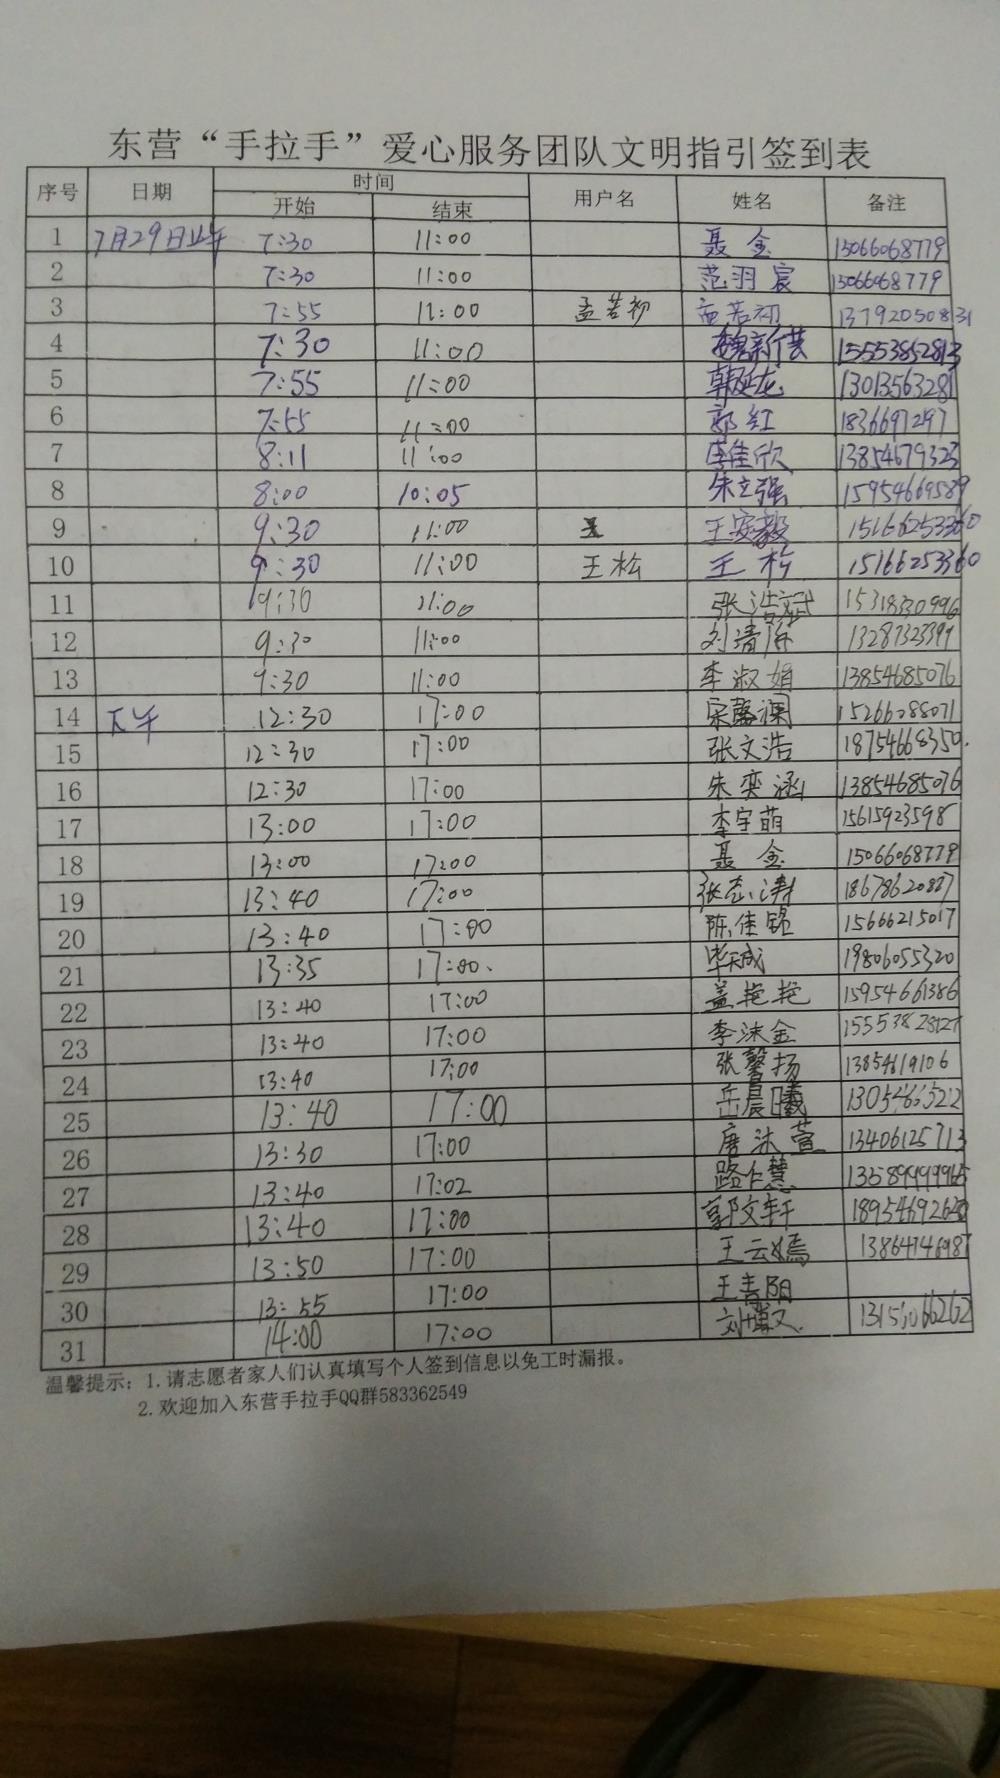 东营“手拉手”爱心服务团队文明指引签到表
序号 日期 时间 用户名 姓名 备注
开始 结束
1 7月29日上午 7:30 11:00 聂金 15066068779
2 7:30 11:00 范羽宸 15066068779
3 7:55 11:00 孟若初 孟若初 13792050831
4 7:30 11:00 15553852813
5 7:55 11:00 13013563281
6 7:55 11:00 郭红 1836697297
7 8:11 11:00 李佳欣 13854679323
8 8:00 10:05 朱立强 15954669589
9 9:30 11:00 王安毅 15166253360
10 9:30 11:00 王松 王松 15166253360
11 9:30 11:00 张浩斌 15318330996
12 9:30 11:00 13287323399
13 9:30 11:00 李淑娟 13854685076
14 下午 12:30 17:00 宋馨澜 15266288071
15 12:30 17:00 张文浩 18754668350.
16 12:30 17:00 朱奕涵 13854685076
17 13:00 17:00 李宇萌 15615923598
18 13:00 17:00 聂金 15066068779
19 13:40 17:00 张志涛 18678620887
20 13:40 17:00 陈佳铭 15666215017
21 13:35 17:00. 19806055320
22 13:40 17:00 盖艳艳 15954661386
23 13:40 17:00 李沫金 15553828127
24 13:40 17:00 张馨扬 13854619106
25 13:40 17:00 岳晨曦 13054665212
26 13:30 17:00 唐沐萱 13406125713
27 13:40 17:02
28 13:40 17:00 郭文轩 18954692620
29 13:50 17:00 王云嫣 13864746987
30 13:55 17:00 王青阳
31 14:00 17:00 刘博文.
温馨提示：1.请志愿者家人们认真填写个人签到信息以免工时漏报。
2.欢迎加入东营手拉手QQ群583362549